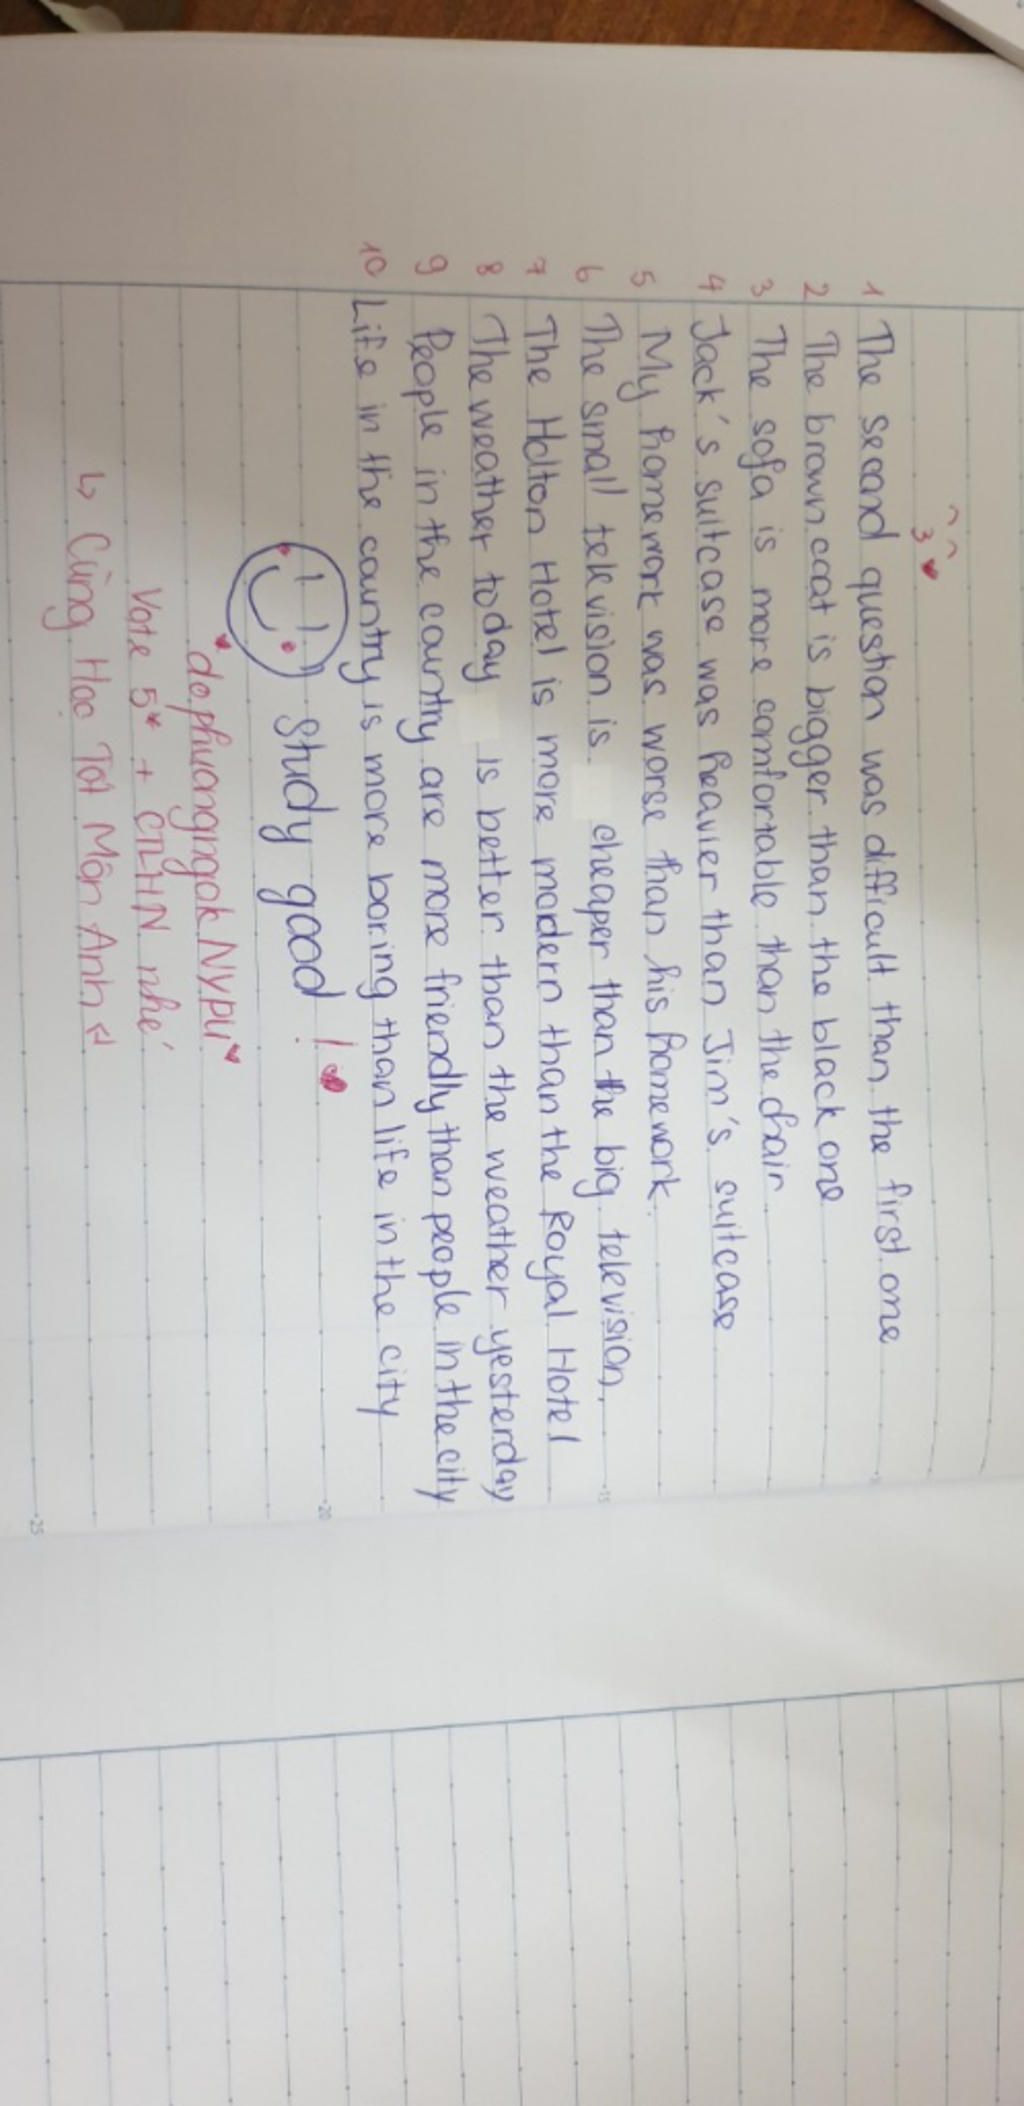 ^ ^
3 ♥
1 The second question was difficult than the first one
2 The brown coat is bigger than the black one
3 The sofa is more comfortable than the chair
4 Jack's suitcase was heavier than Jim's suitcase
5 My homework was worse than his homework.
6 The small television is cheaper than the big television.
7 The Holton Hotel is more modern than the Royal Hotel
8 The weather today is better than the weather yesterday
9 People in the country are more friendly than people in the city
10 Life in the country is more boring than life in the city
study good !
dophuongngokNYPU
Vote 5* + CTLHN nhé
↳ Cùng Học Tốt Môn Anh
15
20
25